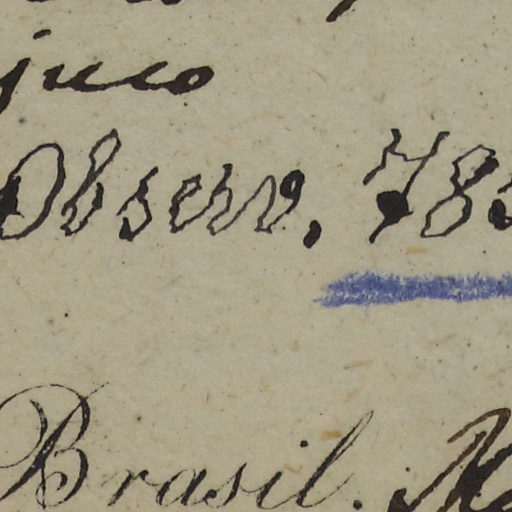 juco
Observ. 78
Brasil.